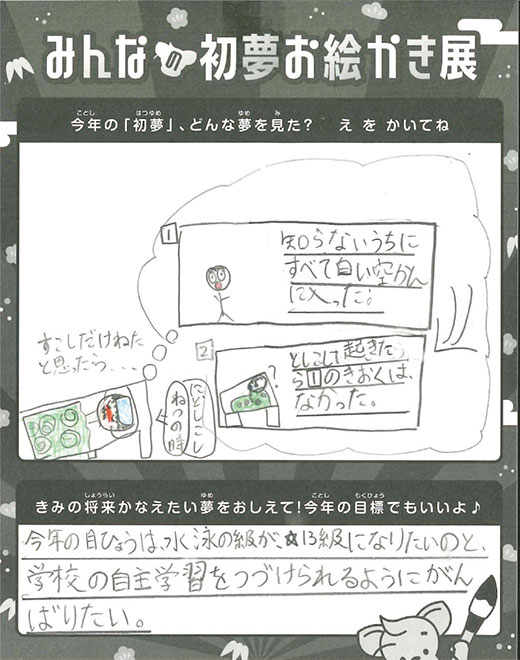 みんなの初夢お絵かき展
今年の「初夢」、どんな夢を見た？ えをかいてね
1
知らないうちに
すべて白い空かん
に入った。
すこしだけねた
と思ったら...
2
としこして起きた
ら1のきおくは、
なかった。
?
にどしこし
ねつの時
きみの将来かなえたい夢をおしえて！今年の目標でもいいよ♪
今年の目ひょうは、水泳の級が、☆13級になりたいのと、
学校の自主学習をつづけられるようにがん
ばりたい。